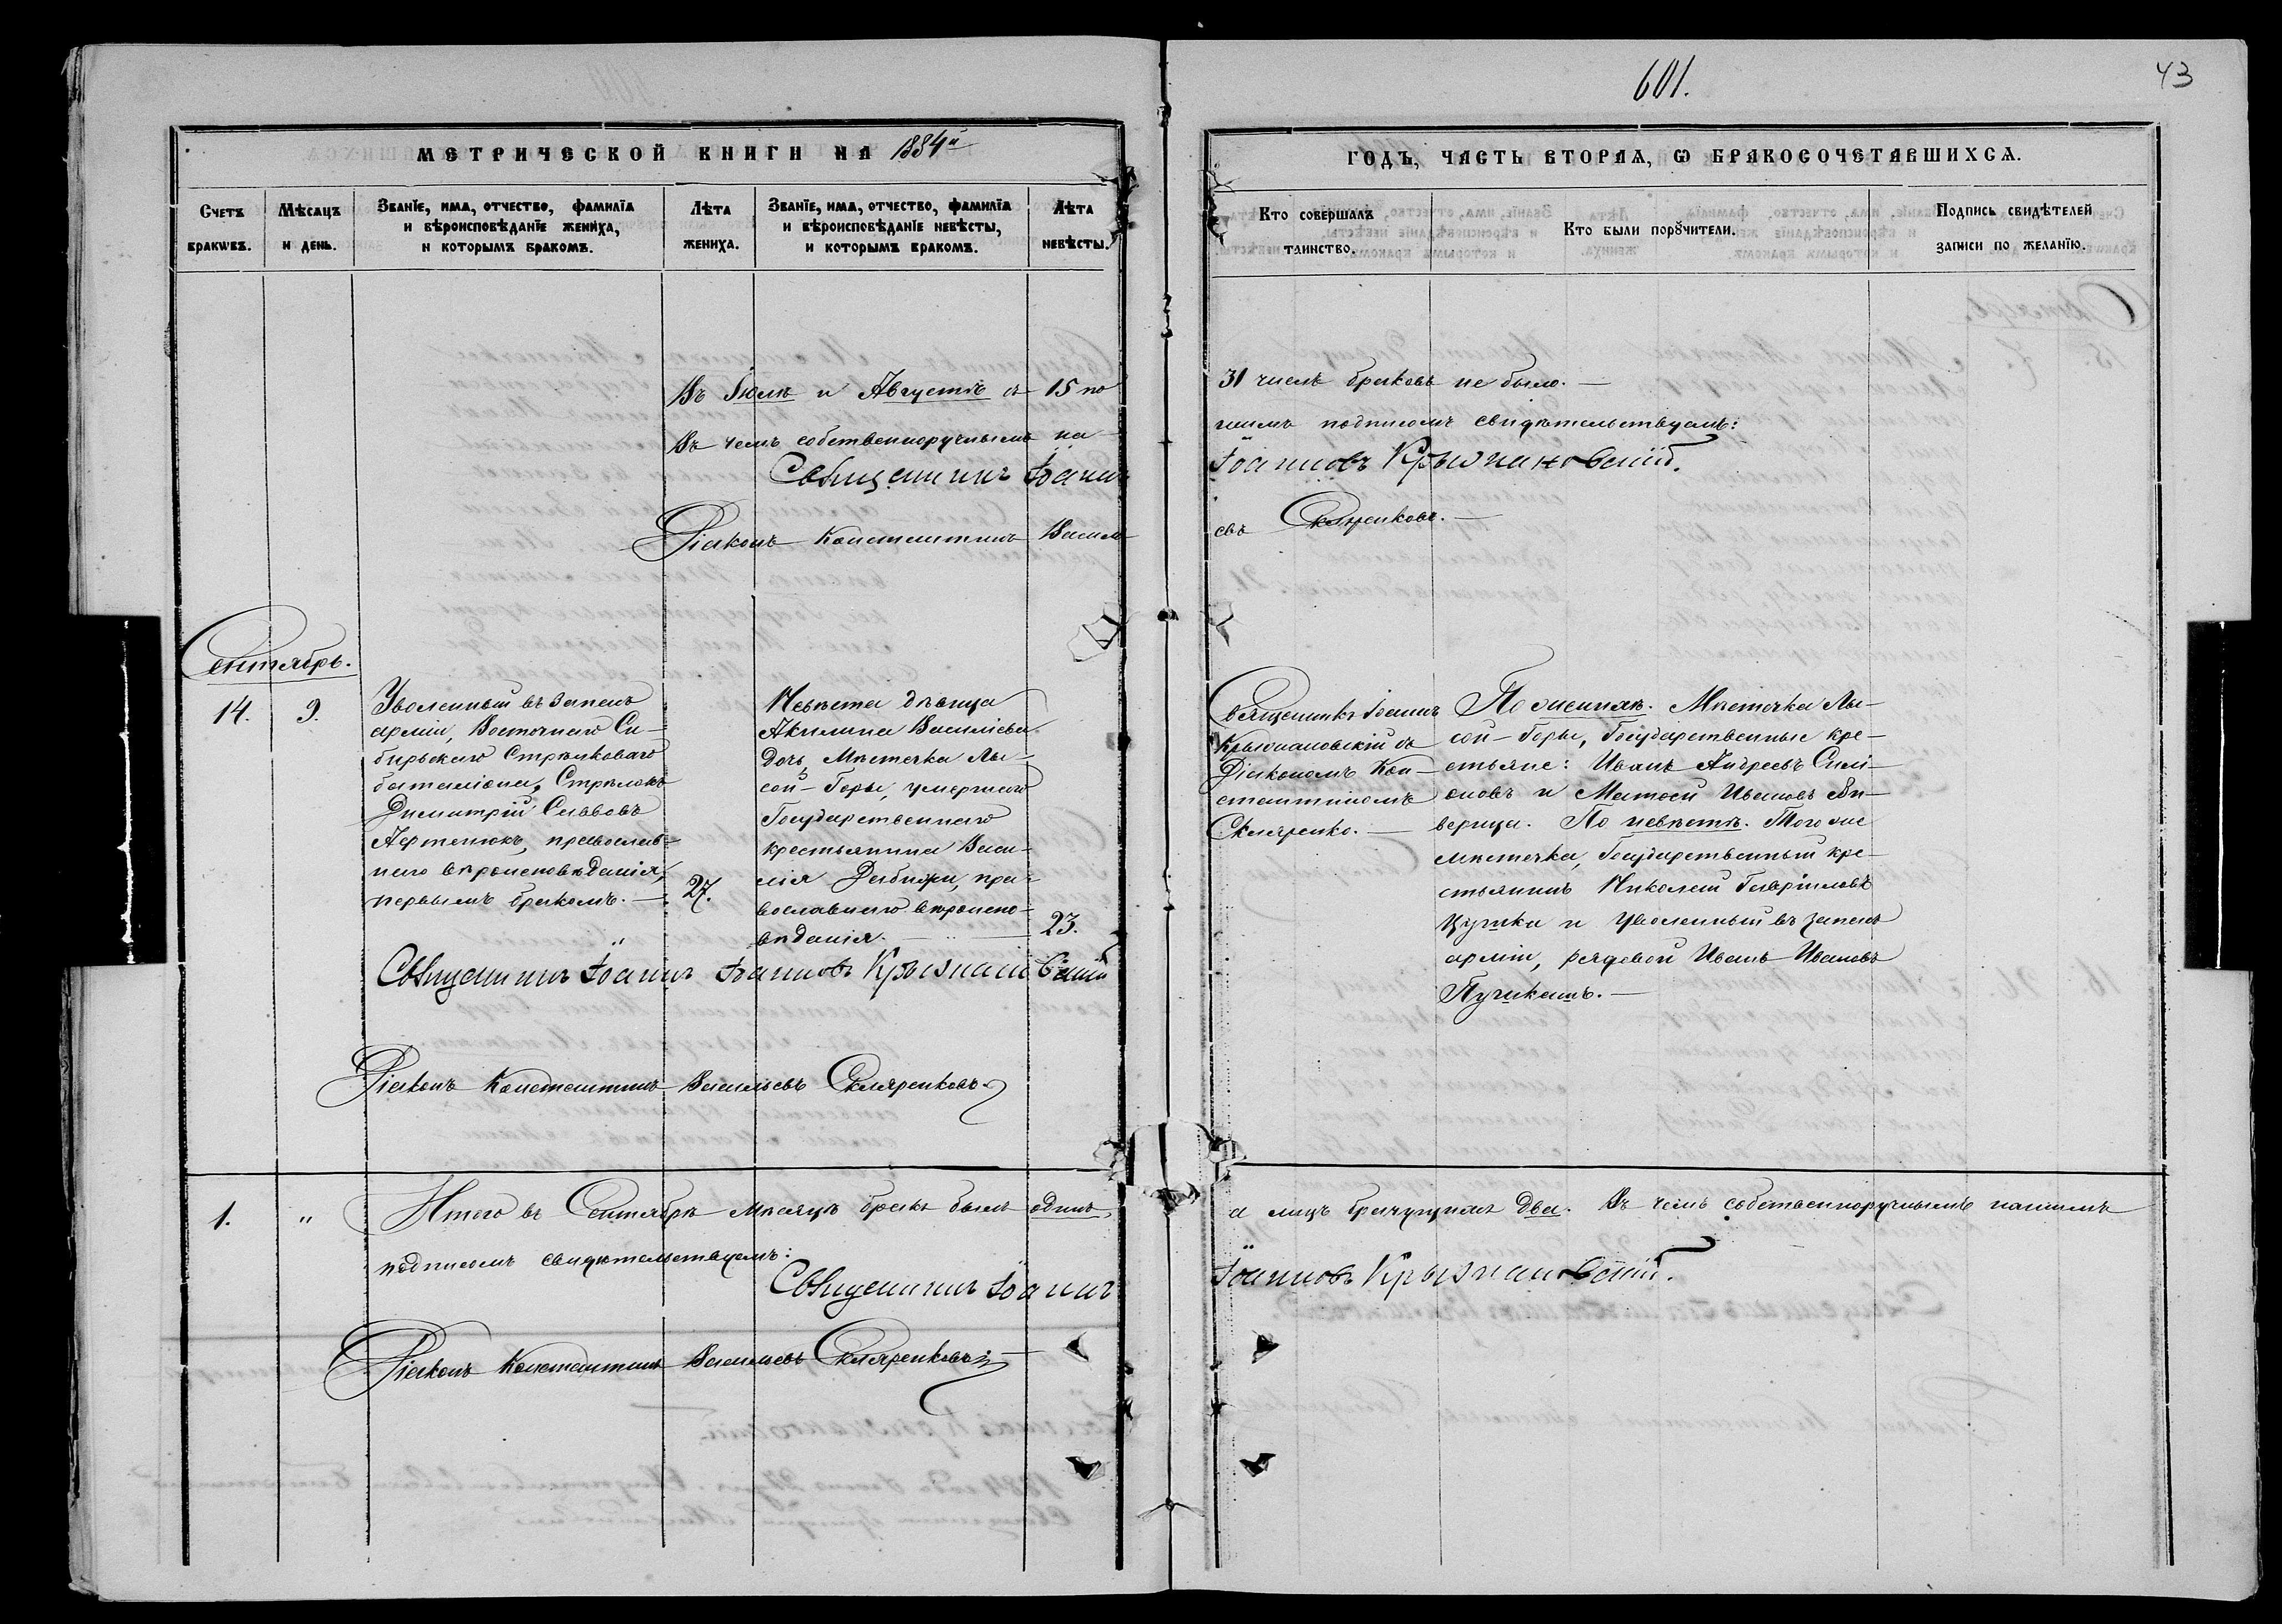 601.
43
МЕТРИЧЕСКОЙ КНИГИ НА 1884й
ГОДЪ, ЧАСТЬ ВТОРАЯ, Ѡ БРАКОСОЧЕТАВШИХСЯ.
Счетъ браковъ.
Мѣсяцъ и день.
Званїе, имя, отчество, фамилїя
и вѣроисповѣданїе жениха,
и которымъ бракомъ.
Лѣта
жениха.
Званїе, имя, отчество, фамилїя
и вѣроисповѣданїе невѣсты,
и которымъ бракомъ.
Лѣта
невѣсты.
Кто совершалъ
таинство.
Кто были порꙋчители.
Подпись свидѣтелей
записи по желанїю.
Въ Іюлѣ и Августѣ съ 15 по 31 числъ браковъ не было. —
Въ чемъ собственноручнымъ нашимъ подписомъ свидѣтельствуемъ:
Священникъ Іоаннъ Іоанновъ Крызнановскій.
Діаконъ Константинъ Васильевъ Скляренковъ. —
Сентябрь.
14.
9.
Уволенный въ запасъ
арміи, Восточнаго Си-
бирскаго Стрѣлковаго
баталіона, Стрѣлокъ
Димитрій Саввовъ
Афтенюкъ, православ-
наго вѣроисповѣданія,
первымъ бракомъ. —
27.
Невѣста дѣвица
Акилина Васильева
дочь, Мѣстечка Лы-
сой-Горы, умершаго
Государственнаго
крестьянина Васи-
лія Рабижи, пра-
вославнаго вѣроиспо-
вѣданія. —
23.
Священникъ Іоаннъ
Крызнановскій съ
Діакономъ Кон-
стантиномъ
Скляренко. —
По женихѣ. Мѣстечка Лы-
сой-Горы, Государственные кре-
стьяне: Иванъ Андреевъ Симі-
оновъ и Матѳей Ивановъ
верица. По невѣстѣ. Того же
мѣстечка, Государственный кре-
стьянинъ Николай Гавріиловъ
Цушка и Уволенный въ запасъ
арміи, рядовой Иванъ Ивановъ
Пушкашъ. —
Священникъ Іоаннъ Іоанновъ Крызнановскій
Діаконъ Константинъ Васильевъ Скляренковъ
1.
"
Итого въ Сентябрѣ мѣсяцѣ бракъ былъ одинъ, а лицъ брачущихъ два. Въ чемъ собственноручнымъ нашимъ
подписомъ свидѣтельствуемъ:
Священникъ Іоаннъ Іоанновъ Крызнановскій.
Діаконъ Константинъ Васильевъ Скляренковъ